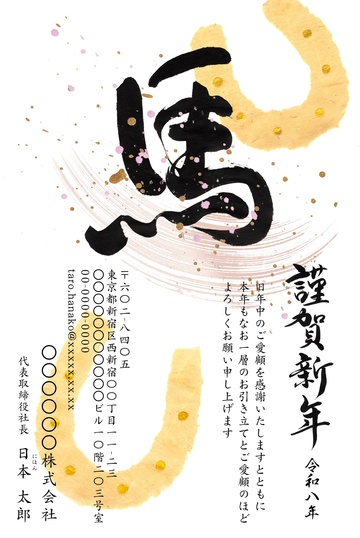 馬
謹賀新年
令和八年
旧年中のご愛顧を感謝いたしますとともに
本年もなお一層のお引き立てとご愛顧のほど
よろしくお願い申し上げます
〒六〇二-八四〇五
東京都新宿区西新宿〇〇丁目一一-二三
〇〇〇〇〇〇〇〇〇〇ビル一〇階二〇三号室
00-0000-0000
taro.hanako@xxxxx.xx.xx
〇〇〇〇〇〇株式会社
代表取締役社長 日本 太郎
にほん